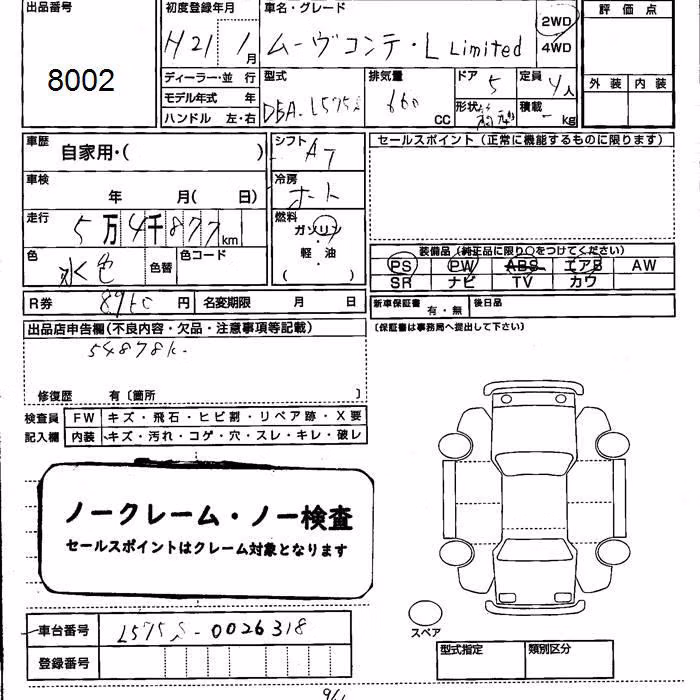 出品番号
8002
初度登録年月
H21 1月
車名・グレード
ムーヴコンテ・L Limited
2WD
4WD
評価点
外装 内装
ディーラー・並行
モデル年式 年
ハンドル 左・右
型式
DBA-L575S
排気量
660
CC
ドア
5
定員
4人
形状
積載
-
kg
車歴
自家用・( )
シフト
AT
セールスポイント(正常に機能するものに限ります)
車検
年 月( 日)
冷房
オート
走行
5万4千877km
燃料
ガソリン
・
軽・油
( )
色
水色
色替
色コード
装備品(純正品に限り○をつけてください)
PS PW ABS エアB AW
SR ナビ TV カワ
R券
8960円
名変期限 月 日
新車保証書
有・無
後日品
(保証書は事務局へ提出して下さい)
出品店申告欄(不良内容・欠品・注意事項等記載)
54878k.
修復歴 有〔箇所 〕
検査員 FW キズ・飛石・ヒビ割・リペア跡・X要
記入欄 内装 キズ・汚れ・コゲ・穴・スレ・キレ・破レ
ノークレーム・ノー検査
セールスポイントはクレーム対象となります
車台番号
L575S-0026318
登録番号
スペア
型式指定
類別区分